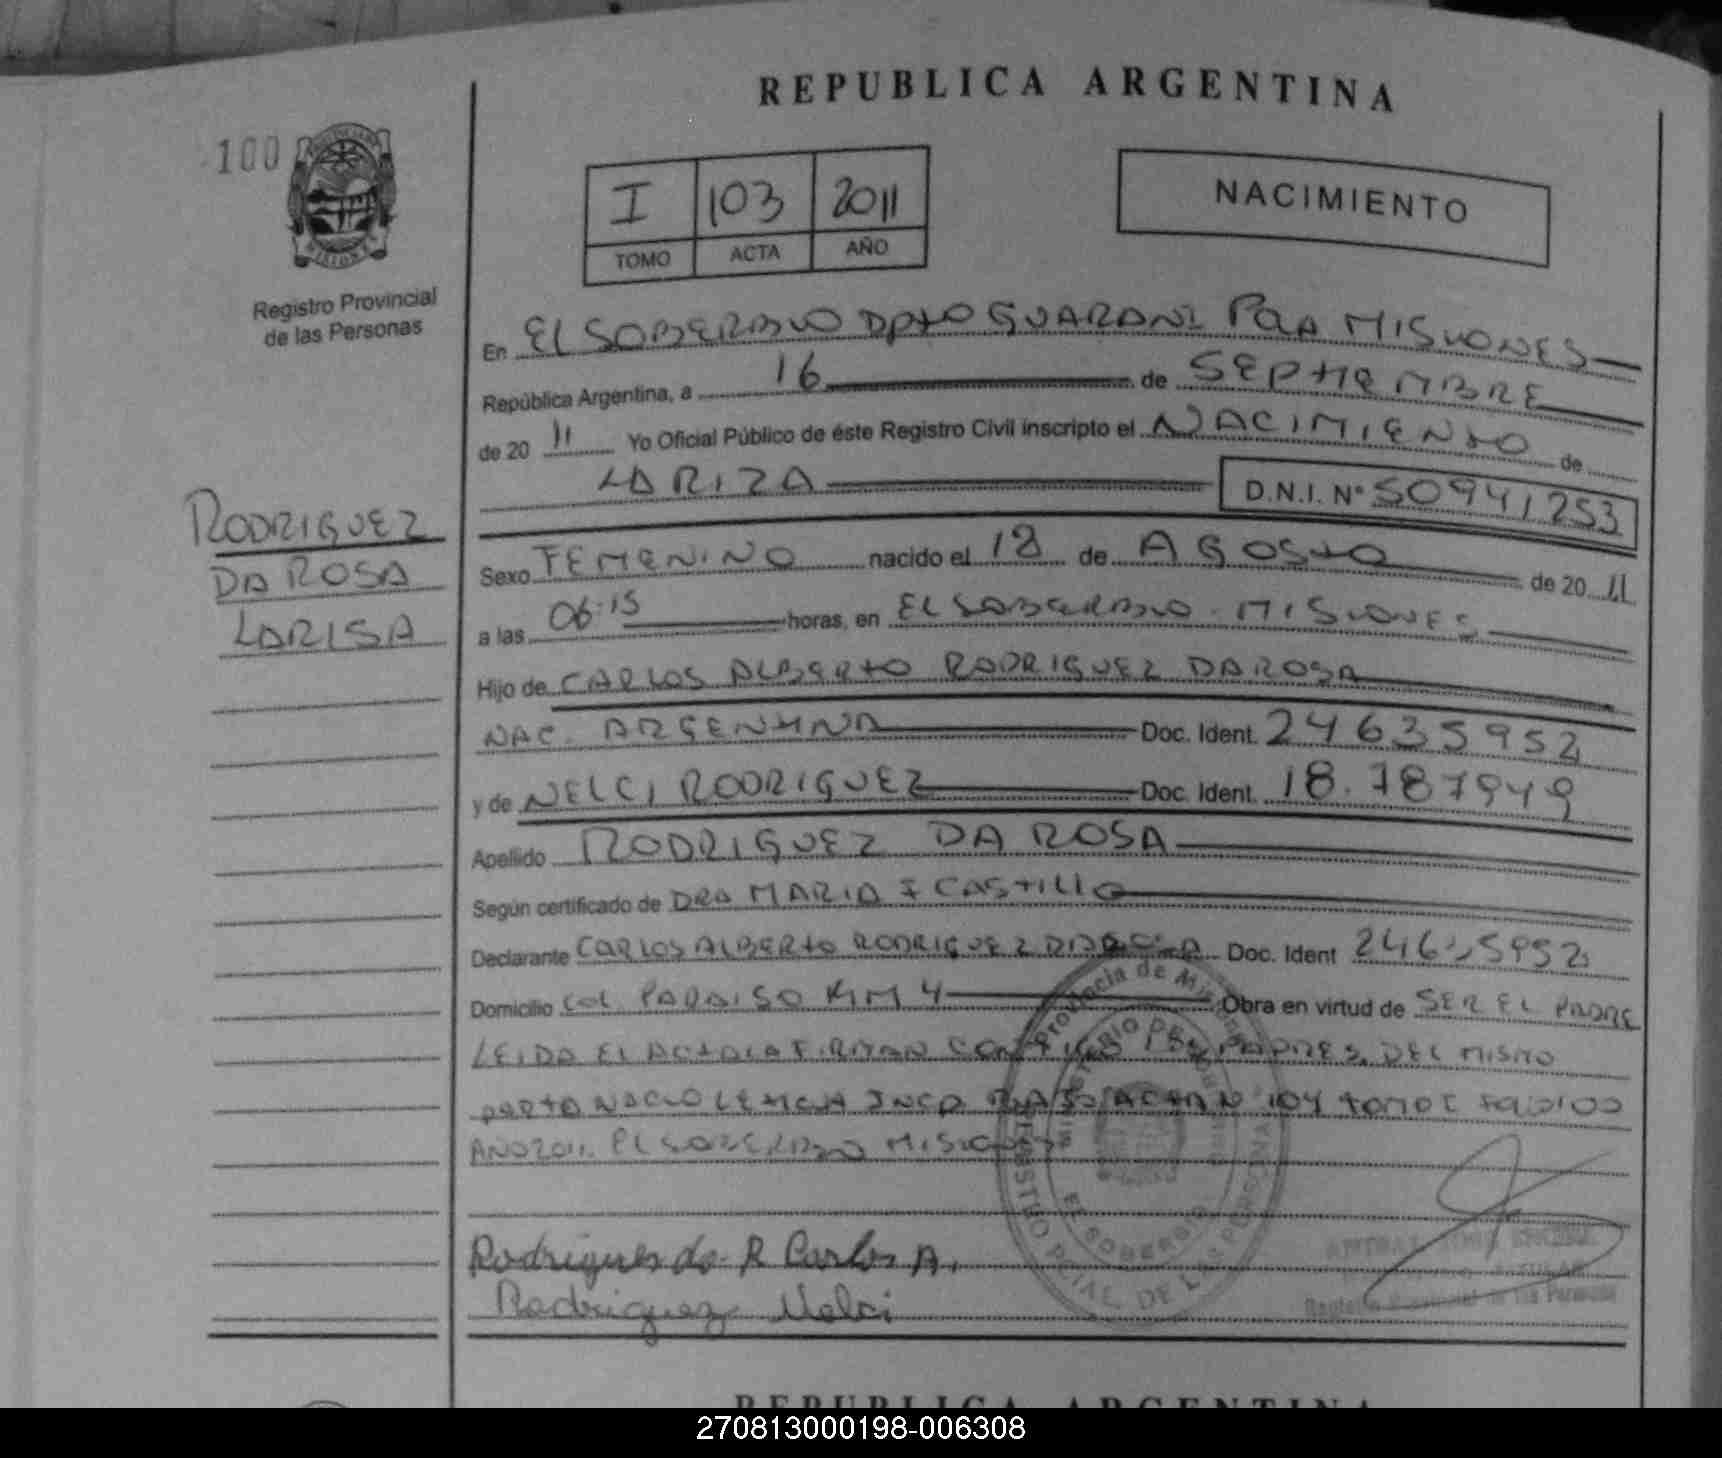 REPUBLICA ARGENTINA
100
I 103 2011
TOMO ACTA AÑO
NACIMIENTO
Registro Provincial
de las Personas
En EL SOBERBIO DPTO GUARANI PCIA MISIONES
República Argentina, a 16 de SEPTIEMBRE
de 20 11 Yo Oficial Público de éste Registro Civil inscripto el NACIMIENTO de
LARIZA D.N.I. Nº 50941253
RODRIGUEZ
DA ROSA
LARISA
Sexo FEMENINO nacido el 18 de AGOSTO de 20 11
a las 06:15 horas, en EL SOBERBIO - MISIONES
Hijo de CARLOS ALBERTO RODRIGUEZ DA ROSA
NAC. ARGENTINA Doc. Ident. 24635952
y de NELCI RODRIGUEZ Doc. Ident. 18.787949
Apellido RODRIGUEZ DA ROSA
Según certificado de DRA MARIA I CASTILLO
Declarante CARLOS ALBERTO RODRIGUEZ DA ROSA Doc. Ident 24635952
Domicilio COL PARAISO KM 4 Obra en virtud de SER EL PADRE
LEIDA EL ACTA LA FIRMAN CONMIGO PADRES. DEL MISMO
PARTO NACIO ACTA N 104 TOMO I FOLIO 100
AÑO 2011. EL SOBERBIO MISIONES
Provincia de Misiones
EL SOBERBIO
REGISTRO PCIAL. DE LAS PERSONAS
Rodrigues da R Carlos A.
Rodriguez Nelci
Registro Provincial de las Personas
REPUBLICA ARGENTINA
270813000198-006308